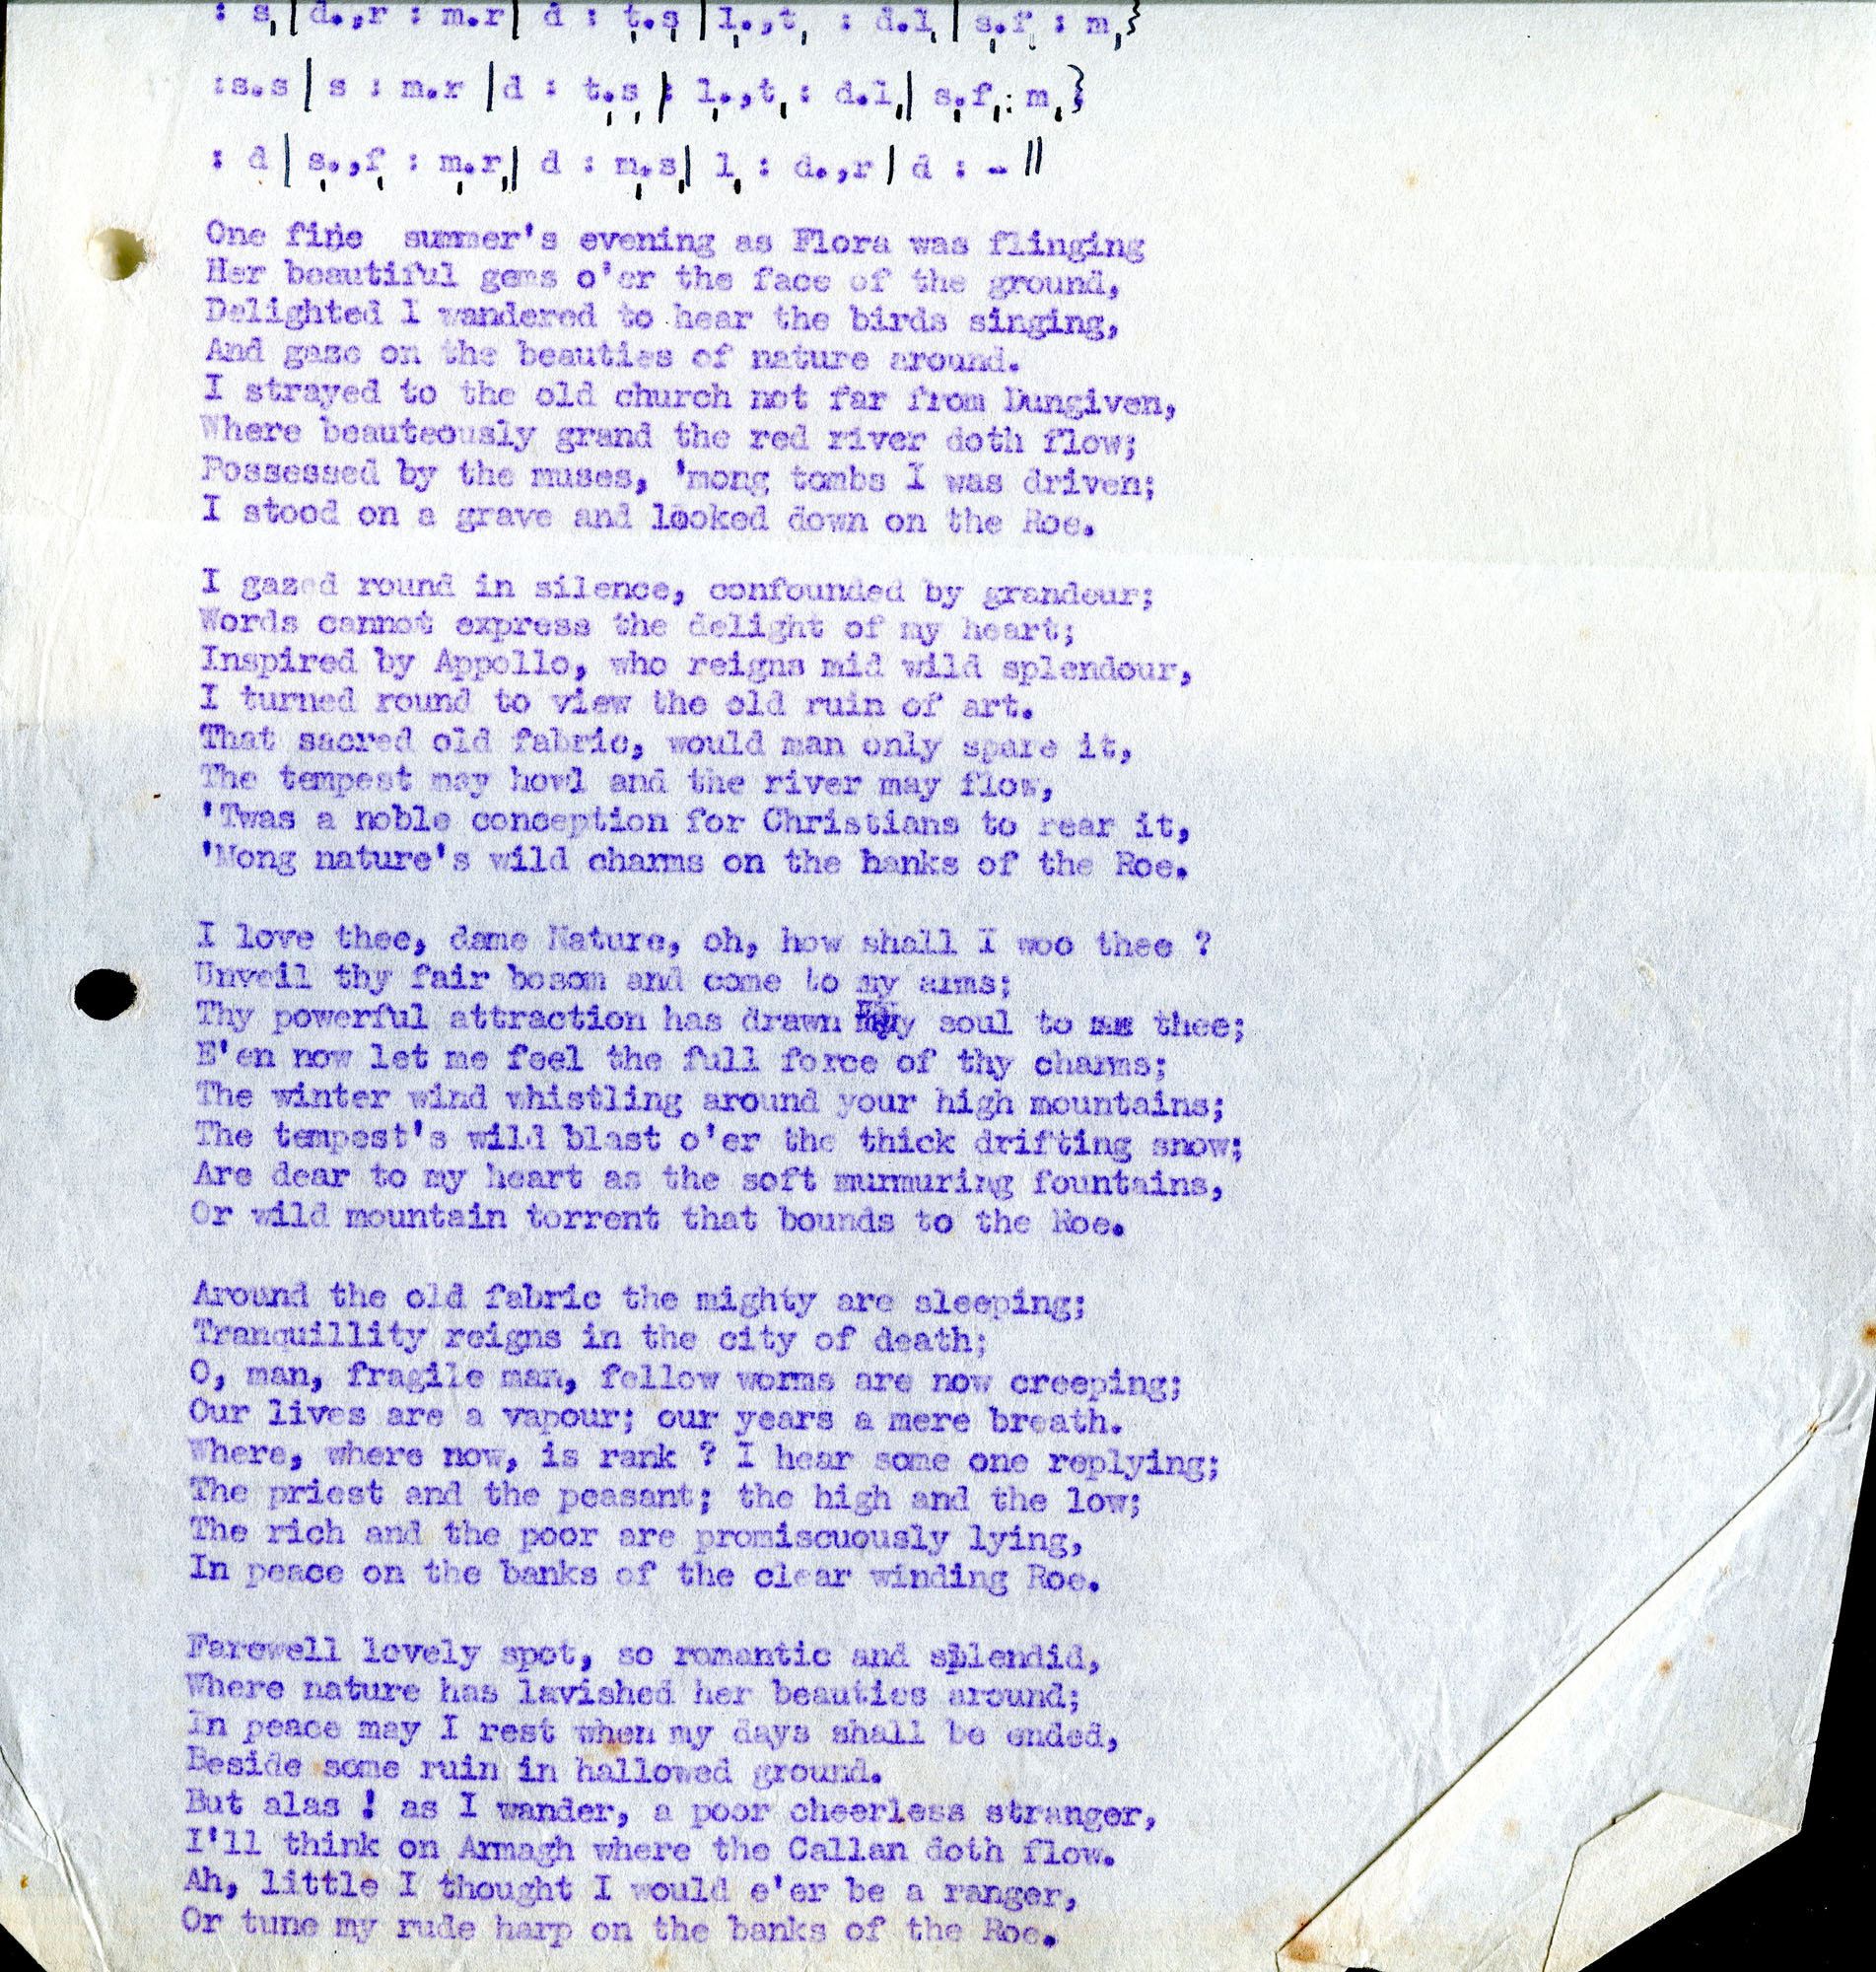 : s, | d.,r : m.r | d : t,.s, | l,.,t, : d.l, | s,.f, : m, }
:s.s | s : m.r | d : t,.s, | l,.,t, : d.l, | s,.f, : m, }
: d | s,.,f, : m,.r, | d : m,.s, | l, : d.,r | d : - ||
One fine summer's evening as Flora was flinging
Her beautiful gems o'er the face of the ground,
Delighted I wandered to hear the birds singing,
And gaze on the beauties of nature around.
I strayed to the old church not far from Dungiven,
Where beauteously grand the red river doth flow;
Possessed by the muses, 'mong tombs I was driven;
I stood on a grave and looked down on the Roe.

I gazed round in silence, confounded by grandeur;
Words cannot express the delight of my heart;
Inspired by Appollo, who reigns mid wild splendour,
I turned round to view the old ruin of art.
That sacred old fabric, would man only spare it,
The tempest may howl and the river may flow,
'Twas a noble conception for Christians to rear it,
'Mong nature's wild charms on the banks of the Roe.

I love thee, dame Nature, oh, how shall I woo thee ?
Unveil thy fair bosom and come to my arms;
Thy powerful attraction has drawn my soul to thee;
E'en now let me feel the full force of thy charms;
The winter wind whistling around your high mountains;
The tempest's wild blast o'er the thick drifting snow;
Are dear to my heart as the soft murmuring fountains,
Or wild mountain torrent that bounds to the Roe.

Around the old fabric the mighty are sleeping;
Tranquillity reigns in the city of death;
O, man, fragile man, fellow worms are now creeping;
Our lives are a vapour; our years a mere breath.
Where, where now, is rank ? I hear some one replying;
The priest and the peasant; the high and the low;
The rich and the poor are promiscuously lying,
In peace on the banks of the clear winding Roe.

Farewell lovely spot, so romantic and splendid,
Where nature has lavished her beauties around;
In peace may I rest when my days shall be ended,
Beside some ruin in hallowed ground.
But alas ! as I wander, a poor cheerless stranger,
I'll think on Armagh where the Callan doth flow.
Ah, little I thought I would e'er be a ranger,
Or tune my rude harp on the banks of the Roe.